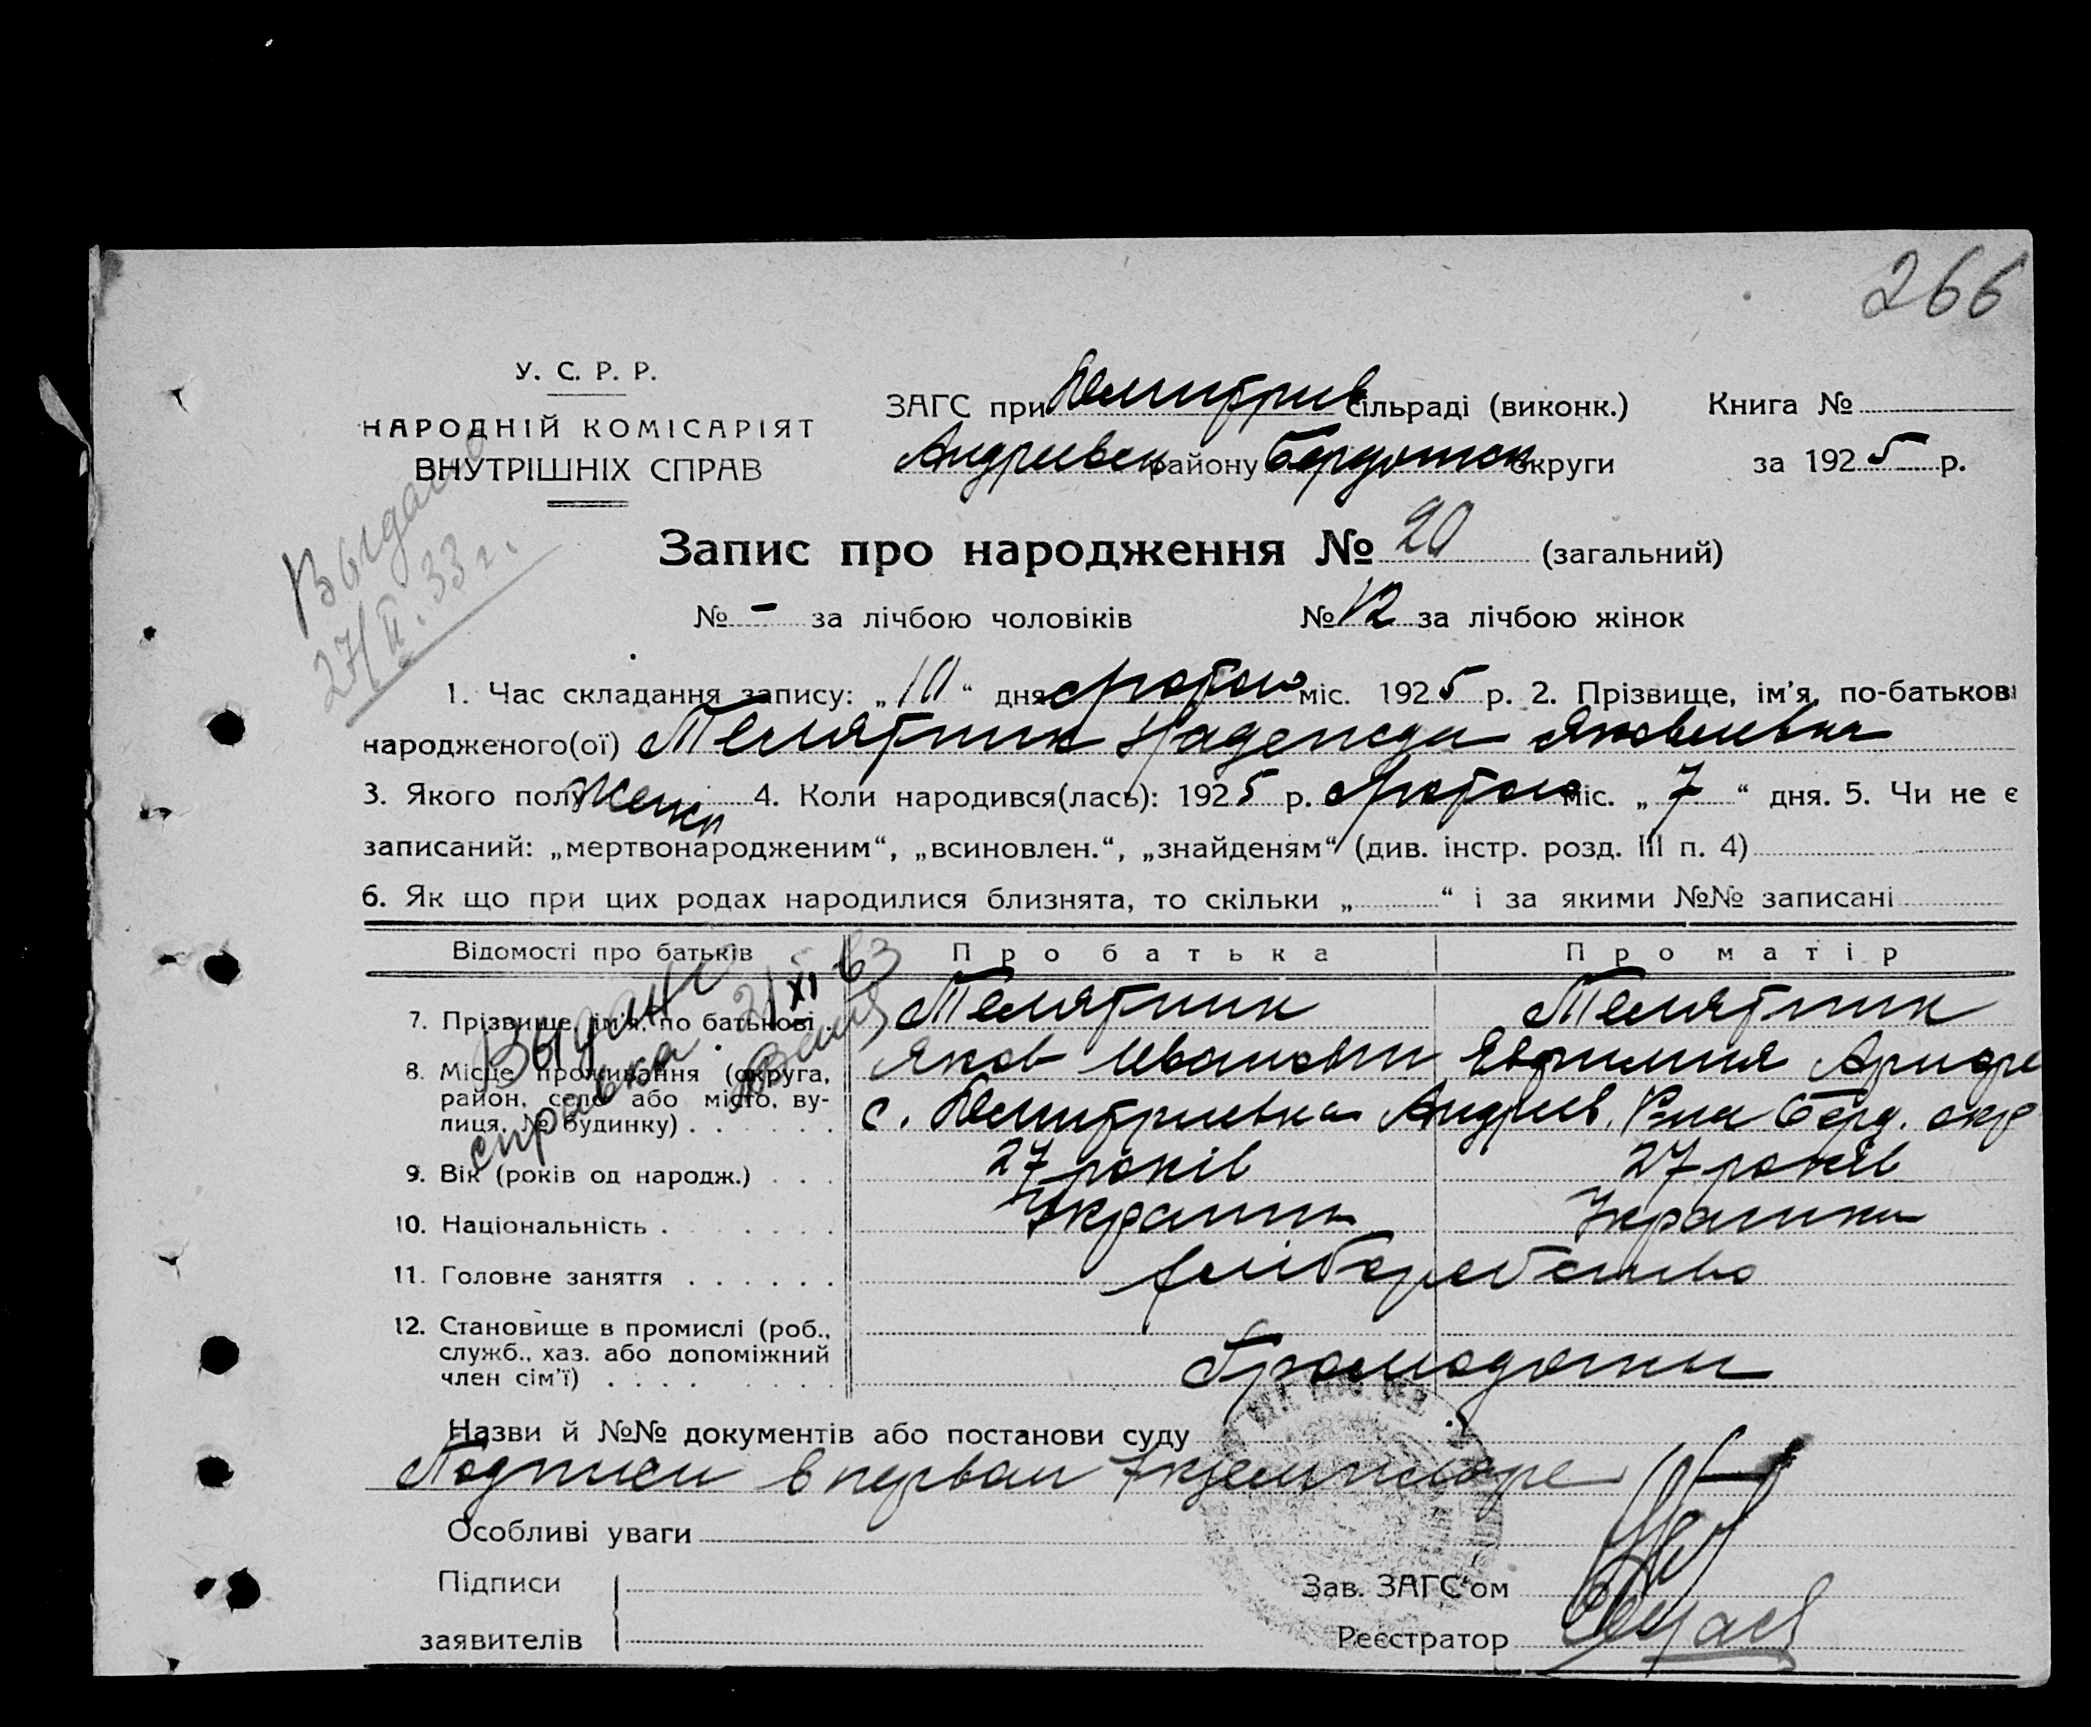 266
У. С. Р. Р.
НАРОДНІЙ КОМІСАРІЯТ
ВНУТРІШНІХ СПРАВ
ЗАГС при Дмитрив сільраді (виконк.) Книга №
Андриевск району Бердянск округи за 1925 р.
Выдано
27/II. 33 г.
Запис про народження № 20 (загальний)
№ - за лічбою чоловіків № 12 за лічбою жінок
1. Час складання запису: „10“ дня лютого міс. 1925 р. 2. Прізвище, ім'я, по-батькові
народженого(ої) Телятник Надежда Яковлевна
3. Якого полу женск 4. Коли народився(лась): 1925 р. лютого міс. „7“ дня. 5. Чи не є
записаний: „мертвонародженим“, „всиновлен.“, „знайденям“ (див. інстр. розд. III п. 4)
6. Як що при цих родах народилися близнята, то скільки „ “ і за якими №№ записані
Відомості про батьків Про батька Про матір
Выдана 21/XI 63
справка.
7. Прізвище, ім'я, по батькові . Телятник Телятник
Яков Иванович Евфимия
8. Місце проживання (округа,
район, село або місто, ву-
лиця, № будинку) . . . . . . с. Дмитриевка Андриев. Р-на Берд. окр
9. Вік (років од народж.) . . . 27 років 27 років
10. Національність . . . . . . Украинк Украинка
11. Головне заняття . . . . . . хліборобство
12. Становище в промислі (роб.,
служб., хаз. або допоміжний
член сім'ї) . . . . . . . .
Назви й №№ документів або постанови суду
Подписи в первом экземпляре
Особливі уваги
Підписи
заявителів
Зав. ЗАГС'ом
Реєстратор